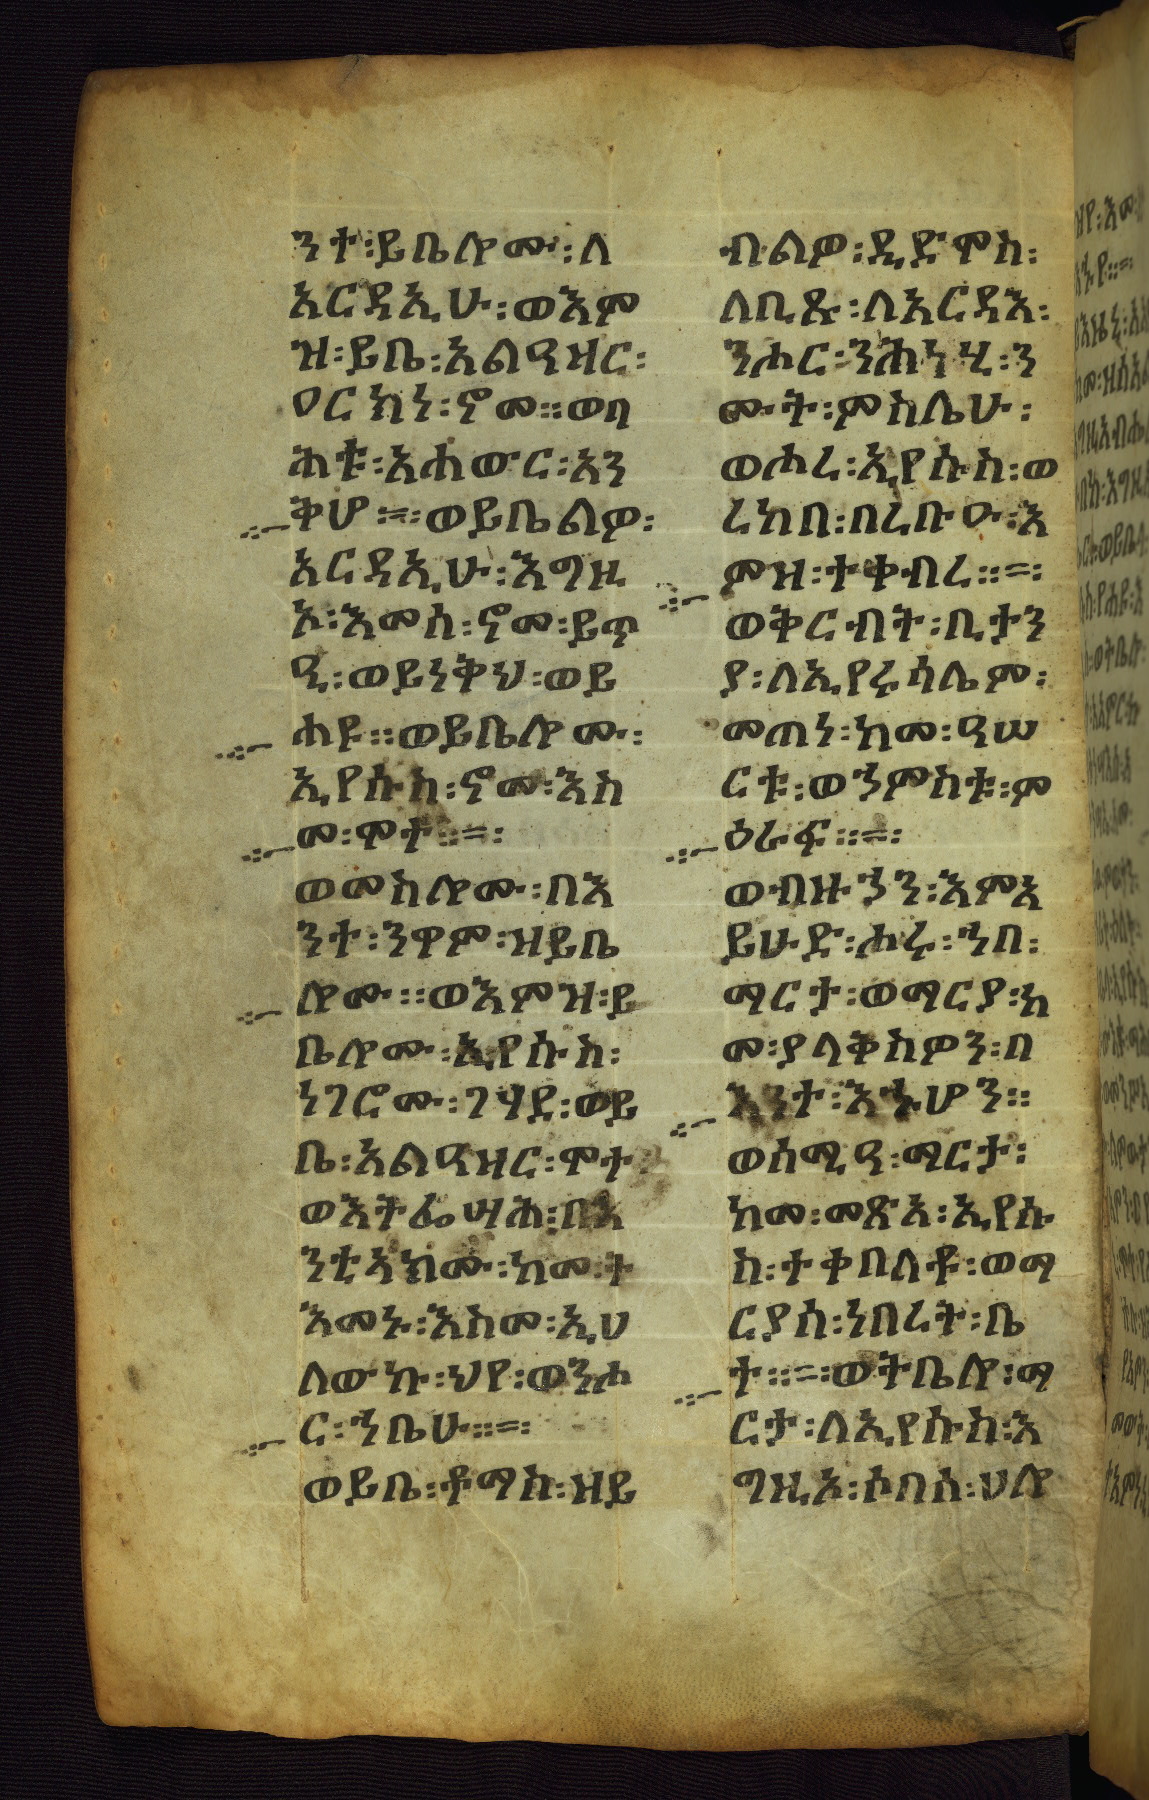 ንተ፡ይቤሎሙ፡ለ
አርዳኢሁ፡ወእም
ዝ፡ይቤ፡አልዓዝር፡
ዐርክነ፡ኖመ፡፡ወባ
ሕቱ፡አሐውር፡አን
ቅሆ፡፡=፡ወይቤልዎ፡
አርዳኢሁ፡እግዚ
ኦ፡እመሰ፡ኖመ፡ይጥ
ዒ፡ወይነቅህ፡ወይ
ሐዩ፡፡ወይቤሎሙ፡
ኢየሱስ፡ኖመ፡እስ
መ፡ሞተ፡፡=፡
ወመስሎሙ፡በእ
ንተ፡ንዋም፡ዝይቤ
ሎሙ፡፡ወእምዝ፡ይ
ቤሎሙ፡ኢየሱስ፡
ነገሮሙ፡ገሃደ፡ወይ
ቤ፡አልዓዝር፡ሞተ
ወእትፌሣሕ፡በእ
ንቲአክሙ፡ከመ፡ት
እመኑ፡እስመ፡ኢሀ
ለውኩ፡ህየ፡ወንሑ
ር፡ኀቤሁ፡፡=፡
ወይቤ፡ቶማስ፡ዝይ
ብልዎ፡ዲድሞስ፡
ለቢጹ፡ለአርዳእ፡
ንሑር፡ንሕነሂ፡ን
ሙት፡ምስሌሁ፡
ወሖረ፡ኢየሱስ፡ወ
ረከበ፡በረቡዑ፡እ
ምዝ፡ተቀብረ፡፡=፡
ወቅርብት፡ቢታን
ያ፡ለኢየሩሳሌም፡
መጠነ፡ከመ፡ዓሠ
ርቱ፡ወኀምስቱ፡ም
ዕራፍ፡፡=፡
ወብዙኃን፡እምአ
ይሁድ፡ሖሩ፡ኀበ፡
ማርታ፡ወማርያ፡ከ
መ፡ያላቅስዎን፡በ
እንተ፡እኁሆን፡፡
ወሰሚዓ፡ማርታ፡
ከመ፡መጽአ፡ኢየሱ
ስ፡ተቀበለቶ፡ወማ
ርያሰ፡ነበረት፡ቤ
ተ፡፡=፡ወትቤሎ፡ማ
ርታ፡ለኢየሱስ፡እ
ግዚኦ፡ሶበሰ፡ሀሎ